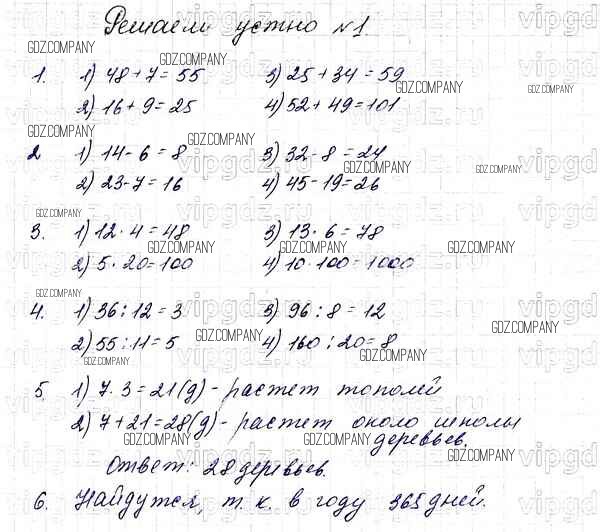 Решаем устно №1
1. 1) 48 + 7 = 55 3) 25 + 34 = 59
2) 16 + 9 = 25 4) 52 + 49 = 101
2 1) 14 - 6 = 8 3) 32 - 8 = 24
2) 23 - 7 = 16 4) 45 - 19 = 26
3. 1) 12 · 4 = 48 3) 13 · 6 = 78
2) 5 · 20 = 100 4) 10 · 100 = 1000
4. 1) 36 : 12 = 3 3) 96 : 8 = 12
2) 55 : 11 = 5 4) 160 : 20 = 8
5. 1) 7 · 3 = 21 (д) - растет тополей
2) 7 + 21 = 28 (д) - растет около школы
деревьев.
Ответ: 28 деревьев.
6. Найдутся, т. к. в году 365 дней.
GDZ.COMPANY
vipgdz.ru